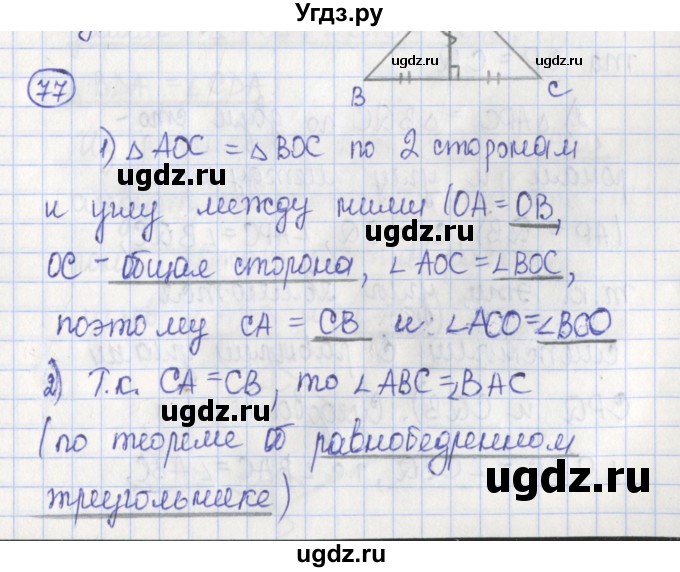 Угдз.ру
ugdz.ru ugdz.ru
77
В С
1) △ AOC = △ BOC по 2 сторонам
ugdz.ru
и углу между ними (OA = OB,
ugdz.ru
OC - общая сторона, ∠ AOC = ∠BOC,
поэтому CA = CB и ∠ACO = ∠BCO
ugdz.ru
2) Т.к. CA = CB, то ∠ ABC = ∠BAC
ugdz.ru
(по теореме об равнобедренном
ugdz.ru
треугольнике)
ugdz.ru